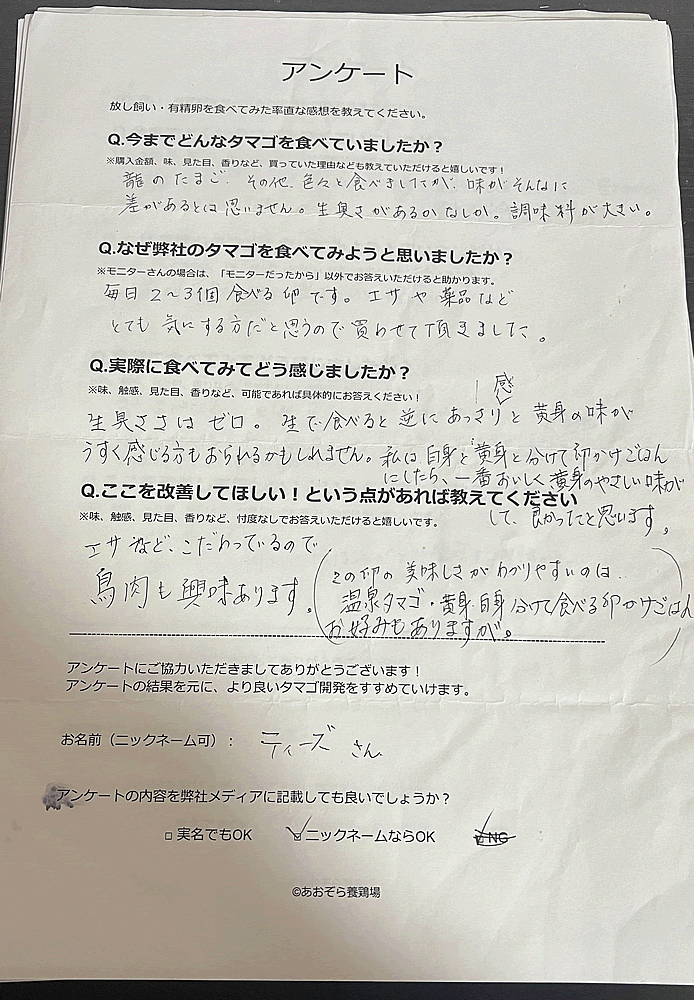 アンケート
放し飼い・有精卵を食べてみた率直な感想を教えてください。
Q.今までどんなタマゴを食べていましたか？
※購入金額、味、見た目、香りなど、買っていた理由なども教えていただけると嬉しいです！
龍のたまご、その他、色々と食べましたが、味がそんなに
差があるとは思いません。生臭さがあるかなしか。調味料が大きい。
Q.なぜ弊社のタマゴを食べてみようと思いましたか？
※モニターさんの場合は、「モニターだったから」以外でお答えいただけると助かります。
毎日2〜3個食べる卵です。エサや薬品など
とても気にする方だと思うので買わせて頂きました。
Q.実際に食べてみてどう感じましたか？
※味、触感、見た目、香りなど、可能であれば具体的にお答えください！
感
生臭ささはゼロ。生で食べると逆にあっさりと黄身の味が
うすく感じる方もおられるかもしれません。私は白身と黄身と分けて卵かけごはん
にしたら、一番おいしく黄身のやさしい味が
Q.ここを改善してほしい！という点があれば教えてください
※味、触感、見た目、香りなど、忖度なしでお答えいただけると嬉しいです。
して、良かったと思います。
エサなど、こだわっているので
鳥肉も興味あります。
(この卵の美味しさがわかりやすいのは、
温泉タマゴ・黄身白身分けて食べる卵かけごはん
お好みもありますが。)
アンケートにご協力いただきましてありがとうございます！
アンケートの結果を元に、より良いタマゴ開発をすすめていけます。
お名前（ニックネーム可）： ティーズ さん
アンケートの内容を弊社メディアに記載しても良いでしょうか？
□ 実名でもOK ☑ ニックネームならOK ☑ NG
©あおぞら養鶏場